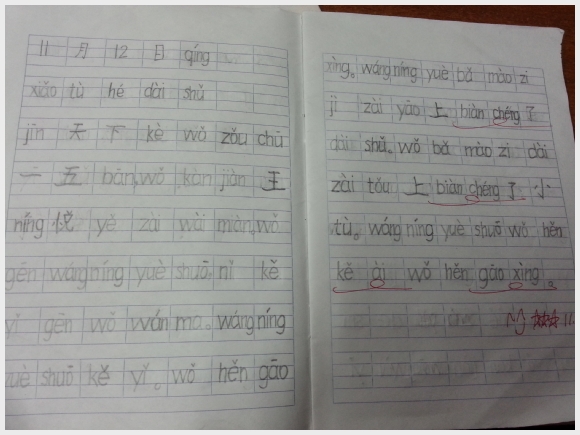 11 月 12 日 qíng
xiǎo tù hé dài shǔ
jīn 天 下 kè wǒ zǒu chū
一 五 bān, wǒ kàn jiàn 王
níng 悦 yě zài wài miàn, wǒ
gēn wáng níng yuè shuō, nǐ kě
yǐ gēn wǒ wán ma。wáng níng
yuè shuō kě yǐ。wǒ hěn gāo
xìng。wáng níng yuè bǎ mào zi
jì zài yāo 上 biàn chéng 了
dài shǔ。wǒ bǎ mào zi dài
zài tóu 上 biàn chéng 了 小
tù。wáng níng yuè shuō wǒ hěn
kě ài wǒ hěn gāo xìng。